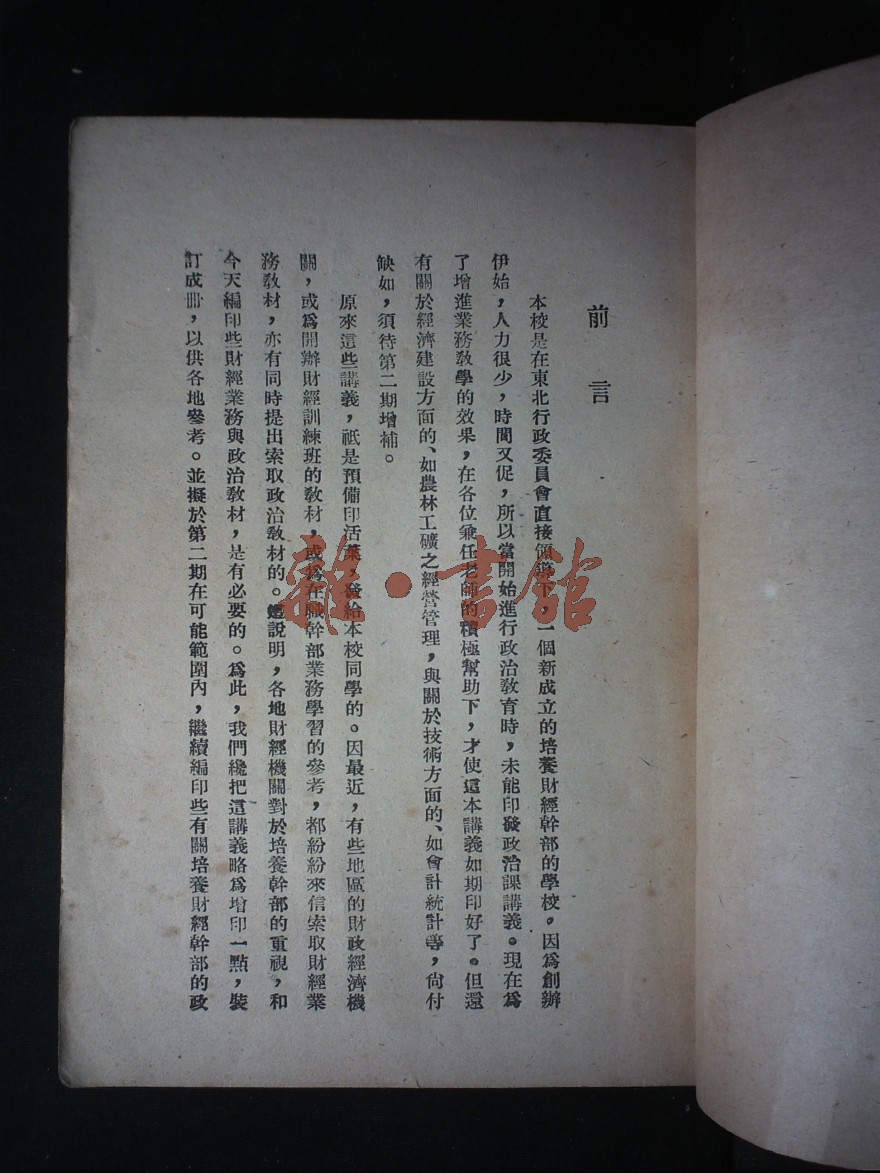 前言
本校是在東北行政委員會直接領導下。一個新成立的培養財經幹部的學校。因爲創辦
伊始，人力很少，時間又促，所以當開始進行政治教育時，未能印發政治課講義。現在爲
了增進業務教學的效果，在各位兼任老師的積極幫助下，才使這本講義如期印好了。但還
有關於經濟建設方面的、如農林工礦之經營管理，與關於技術方面的、如會計統計等，尙付
缺如，須待第二期增補。
原來這些講義，祇是預備印活葉，發給本校同學的。因最近，有些地區的財政經濟機
關，或爲開辦財經訓練班的教材，或爲在職幹部業務學習的參考，都紛紛來信索取財經業
務教材，亦有同時提出索取政治教材的。這說明，各地財經機關對於培養幹部的重視，和
今天編印些財經業務與政治教材，是有必要的。爲此，我們纔把這講義略爲增印一點，裝
訂成冊，以供各地參考。並擬於第二期在可能範圍內，繼續編印些有關培養財經幹部的政
雜·書館